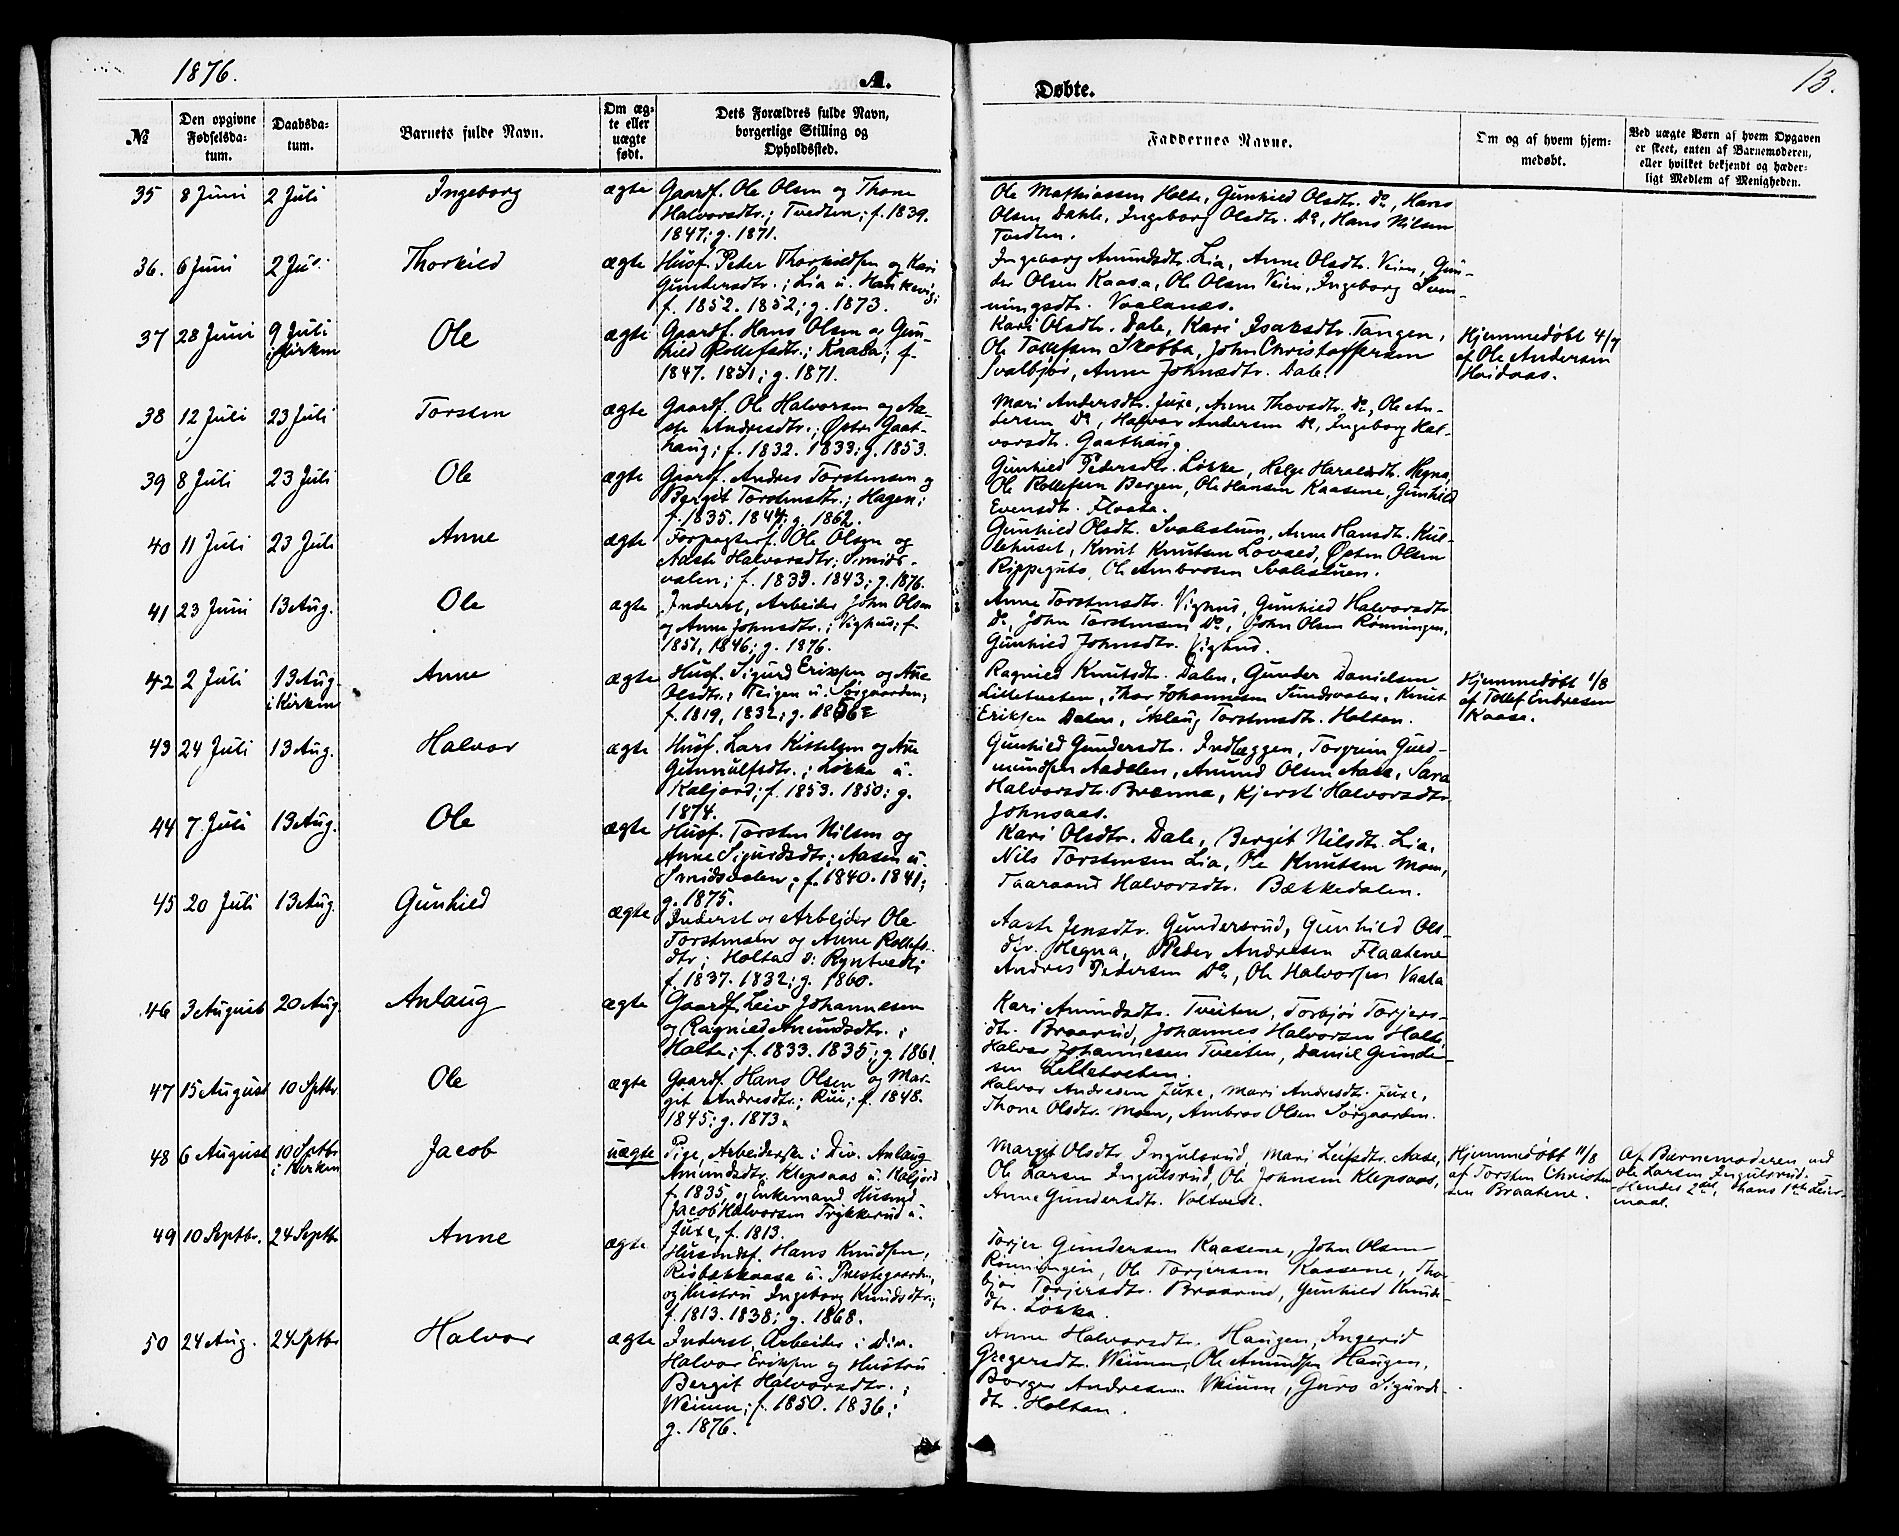 1876.
A.
Døbte.
13.
№
Den opgivne Fødselsda-tum.
Daabsda-tum.
Barnets fulde Navn.
Om æg-te eller uægte født.
Dets Forældres fulde Navn, borgerlige Stilling og Opholdssted.
Faddernes Navne.
Om og af hvem hjem-medøbt.
Ved uægte Børn af hvem Opgaven er skeet, enten af Barnemoderen, eller hvilket bekjendt og hæder-ligt Medlem af Menigheden.
35 8 Juni 2 Juli Ingeborg ægte
Gaardf. Ole Olsen og Thone
Halvorsdtr.; Tvedten; f. 1839.
1847; g. 1871.
Ole Mathiassen Holte, Gunhild Olsdtr. Do, Hans
Olsen Dahle, Ingeborg Olsdtr. Do, Hans Nilsen
Tvedten.
36. 6 Juni 2 Juli Thorkild ægte
Husf. Peder Thorkildsen og Kari
Gundersdtr.; Lia u. Haukevig;
f. 1852. 1852; g. 1873.
Ingeborg Amundsdtr. Lia, Anne Olsdtr. Veien, Gun-
der Olsen Kaasa, Ole Olsen Veien, Ingeborg Svenn-
ningsdtr. Vaalanes.
37 28 Juni 9 Juli i Kirken Ole ægte
Gaardf. Hans Olsen og Gun-
hild Rollefsdtr.; Kaasa; f.
1847. 1851; g. 1871.
Kari Olsdtr. Dale, Kari Isaksdtr. Tangen,
Ole Tollefsen Skobba, John Christoffersen
Svalbjør, Anne Johnsdtr. Dale.
Hjemmedøbt 4/7
af Ole Andersen
Hvidaas.
38 12 Juli 23 Juli Torsten ægte
Gaardf. Ole Halvorsen og Aa-
ste Andresdtr.; Østre Gaat-
haug; f. 1832. 1833; g. 1853.
Mari Andersdtr. Juxe, Anne Thovsdtr. Do, Ole An-
dersen Do, Halvor Andersen Do, Ingeborg Hal-
vorsdtr. Gaathaug.
39 8 Juli 23 Juli Ole ægte
Gaardf. Andres Torstensen og
Bergit Torstensdtr.; Hagen;
f. 1835. 1844; g. 1862.
Gunhild Pedersdtr. Løkke, Helge Haraldsdtr. Hegna,
Ole Rollefsen Bergen, Ole Hansen Kaasene, Gunhild
Evensdtr. Flaata.
40 11 Juli 23 Juli Anne ægte
Forpagterf. Ole Olsen og
Aaste Halvorsdtr.; Smids-
valen; f. 1839. 1843; g. 1876.
Gunhild Olsdtr. Svalestuen, Anne Hansdtr. Kul-
lehuset, Knut Knutsen Lovald, Østen Olsen
Rippeguto, Ole Ambrosen Svalestuen.
41 23 Juni 13 Aug. Ole ægte
Inderst, Arbeider John Olsen
og Anne Johnsdtr.; Vighus; f.
1851, 1846; g. 1876.
Anne Torstensdtr. Vighus, Gunhild Halvorsdtr.
Do, John Torstensen Do, John Olsen Rønningen,
Gunhild Johnsdtr. Vighus.
42 2 Juli 13 Aug. i Kirken Anne ægte
Husf. Sigurd Eriksen og Ane
Olsdtr.; Teigen u. Sørgaarden;
f. 1819, 1832; g. 1856
Ragnild Knutsdtr. Dalen, Gunder Danielsen
Lilletveten, Thor Johannesen Sundsvalen, Knut
Eriksen Dalen, Aslaug Torstensdtr. Holtan.
Hjemmedøbt 1/8
af Tollef Endresen
Kaasa.
43 24 Juli 13 Aug. Halvor ægte
Husf. Lars Kittelsen og Ane
Gunnulfsdtr.; Løkka u.
Kaljord; f. 1853. 1850; g.
1874.
Gunhild Gundersdtr. Indlæggen, Torgrim Gud-
mundsen Aadalen, Amund Olsen Aase, Sara
Halvorsdtr. Brenna, Kjersti Halvorsdtr.
Johnsaas.
44 7 Juli 13 Aug. Ole ægte
Husf. Torsten Nilsen og
Anne Sigurdsdtr.; Aasen u.
Smidsvalen; f. 1840. 1841;
g. 1875.
Kari Olsdtr. Dale, Bergit Nilsdtr. Lia,
Nils Torstensen Lia, Ole Knutsen Moen,
Taaraand Halvorsdtr. Bækkedalen.
45 20 Juli 13 Aug. Gunhild ægte
Inderst og Arbejder Ole
Torstensen og Anne Rollefs-
dtr; Holta u. Ryntveit;
f. 1837. 1832; g. 1860.
Aaste Jensdtr. Gundersrud, Gunhild Ols-
dtr. Hegna, Peder Andresen Flaatene
Andres Pedersen Do, Ole Halvorsen Vaala
46 3 August 20 Aug. Anlaug ægte
Gaardf. Leiv Johannesen
og Ragnild Amundsdtr.;
Holte; f. 1833. 1835; g. 1861.
Kari Amundsdtr. Tveiten, Torbjør Torjers-
dtr. Braarud, Johannes Halvorsen Holte,
Halvor Johannesen Tveiten, Daniel Gunder-
sen Lilletveten.
47 15 August 10 Septbr. Ole ægte
Gaardf. Hans Olsen og Mar-
git Andresdtr.; Rui; f. 1848.
1845; g. 1873.
Halvor Andresen Juxe, Mari Andresdtr. Juxe,
Thone Olsdtr. Moen, Ambros Olsen Sørgaarden.
48 6 August 10 Septbr. i Kirken Jacob uægte
Pige, Arbeiderske i Div. Anlaug
Amundsdtr. Klepsaas u. Kaljord
f. 1835, og Enkemand Husmd.
Jacob Halvorsen Trykkerud u.
Juxe, f. 1813.
Margit Olsdtr. Ingulsrud, Mari Leifsdtr. Aase,
Ole Larsen Ingulsrud, Ole Johnsen Klepsaas,
Anne Gundersdtr. Valtvedt.
Hjemmedøbt 11/8
af Torsten Christen-
sen Braatene.
Af Barnemoderen ved
Ole Larsen Ingulsrud.
Hendes 2det, hans 1ste Leier-
maal.
49 10 Septbr. 24 Septbr Anne ægte
Husmdsf. Hans Knudsen,
Risbækkaasa u. Prestegaarden,
og Hustru Ingeborg Knudsdtr.;
f. 1813. 1838; g. 1868.
Torjer Gundersen Kaasene, John Olsen
Rønningen, Ole Torjersen Kaasene, Thor-
bjør Torjersdtr. Braarud, Gunhild Knuds-
dtr. Løkka.
50 24 Aug. 24 Septbr Halvor ægte
Inderst, Arbeider i Div.
Halvor Eriksen og Hustru
Bergit Halvorsdtr.;
Weium; f. 1850. 1836;
g. 1876.
Anne Halvorsdtr. Haugen, Ingerid
Gregersdtr. Weium, Ole Amundsen Haugen,
Borger Andresen Weium, Guro Sigurds-
dtr. Holtan.